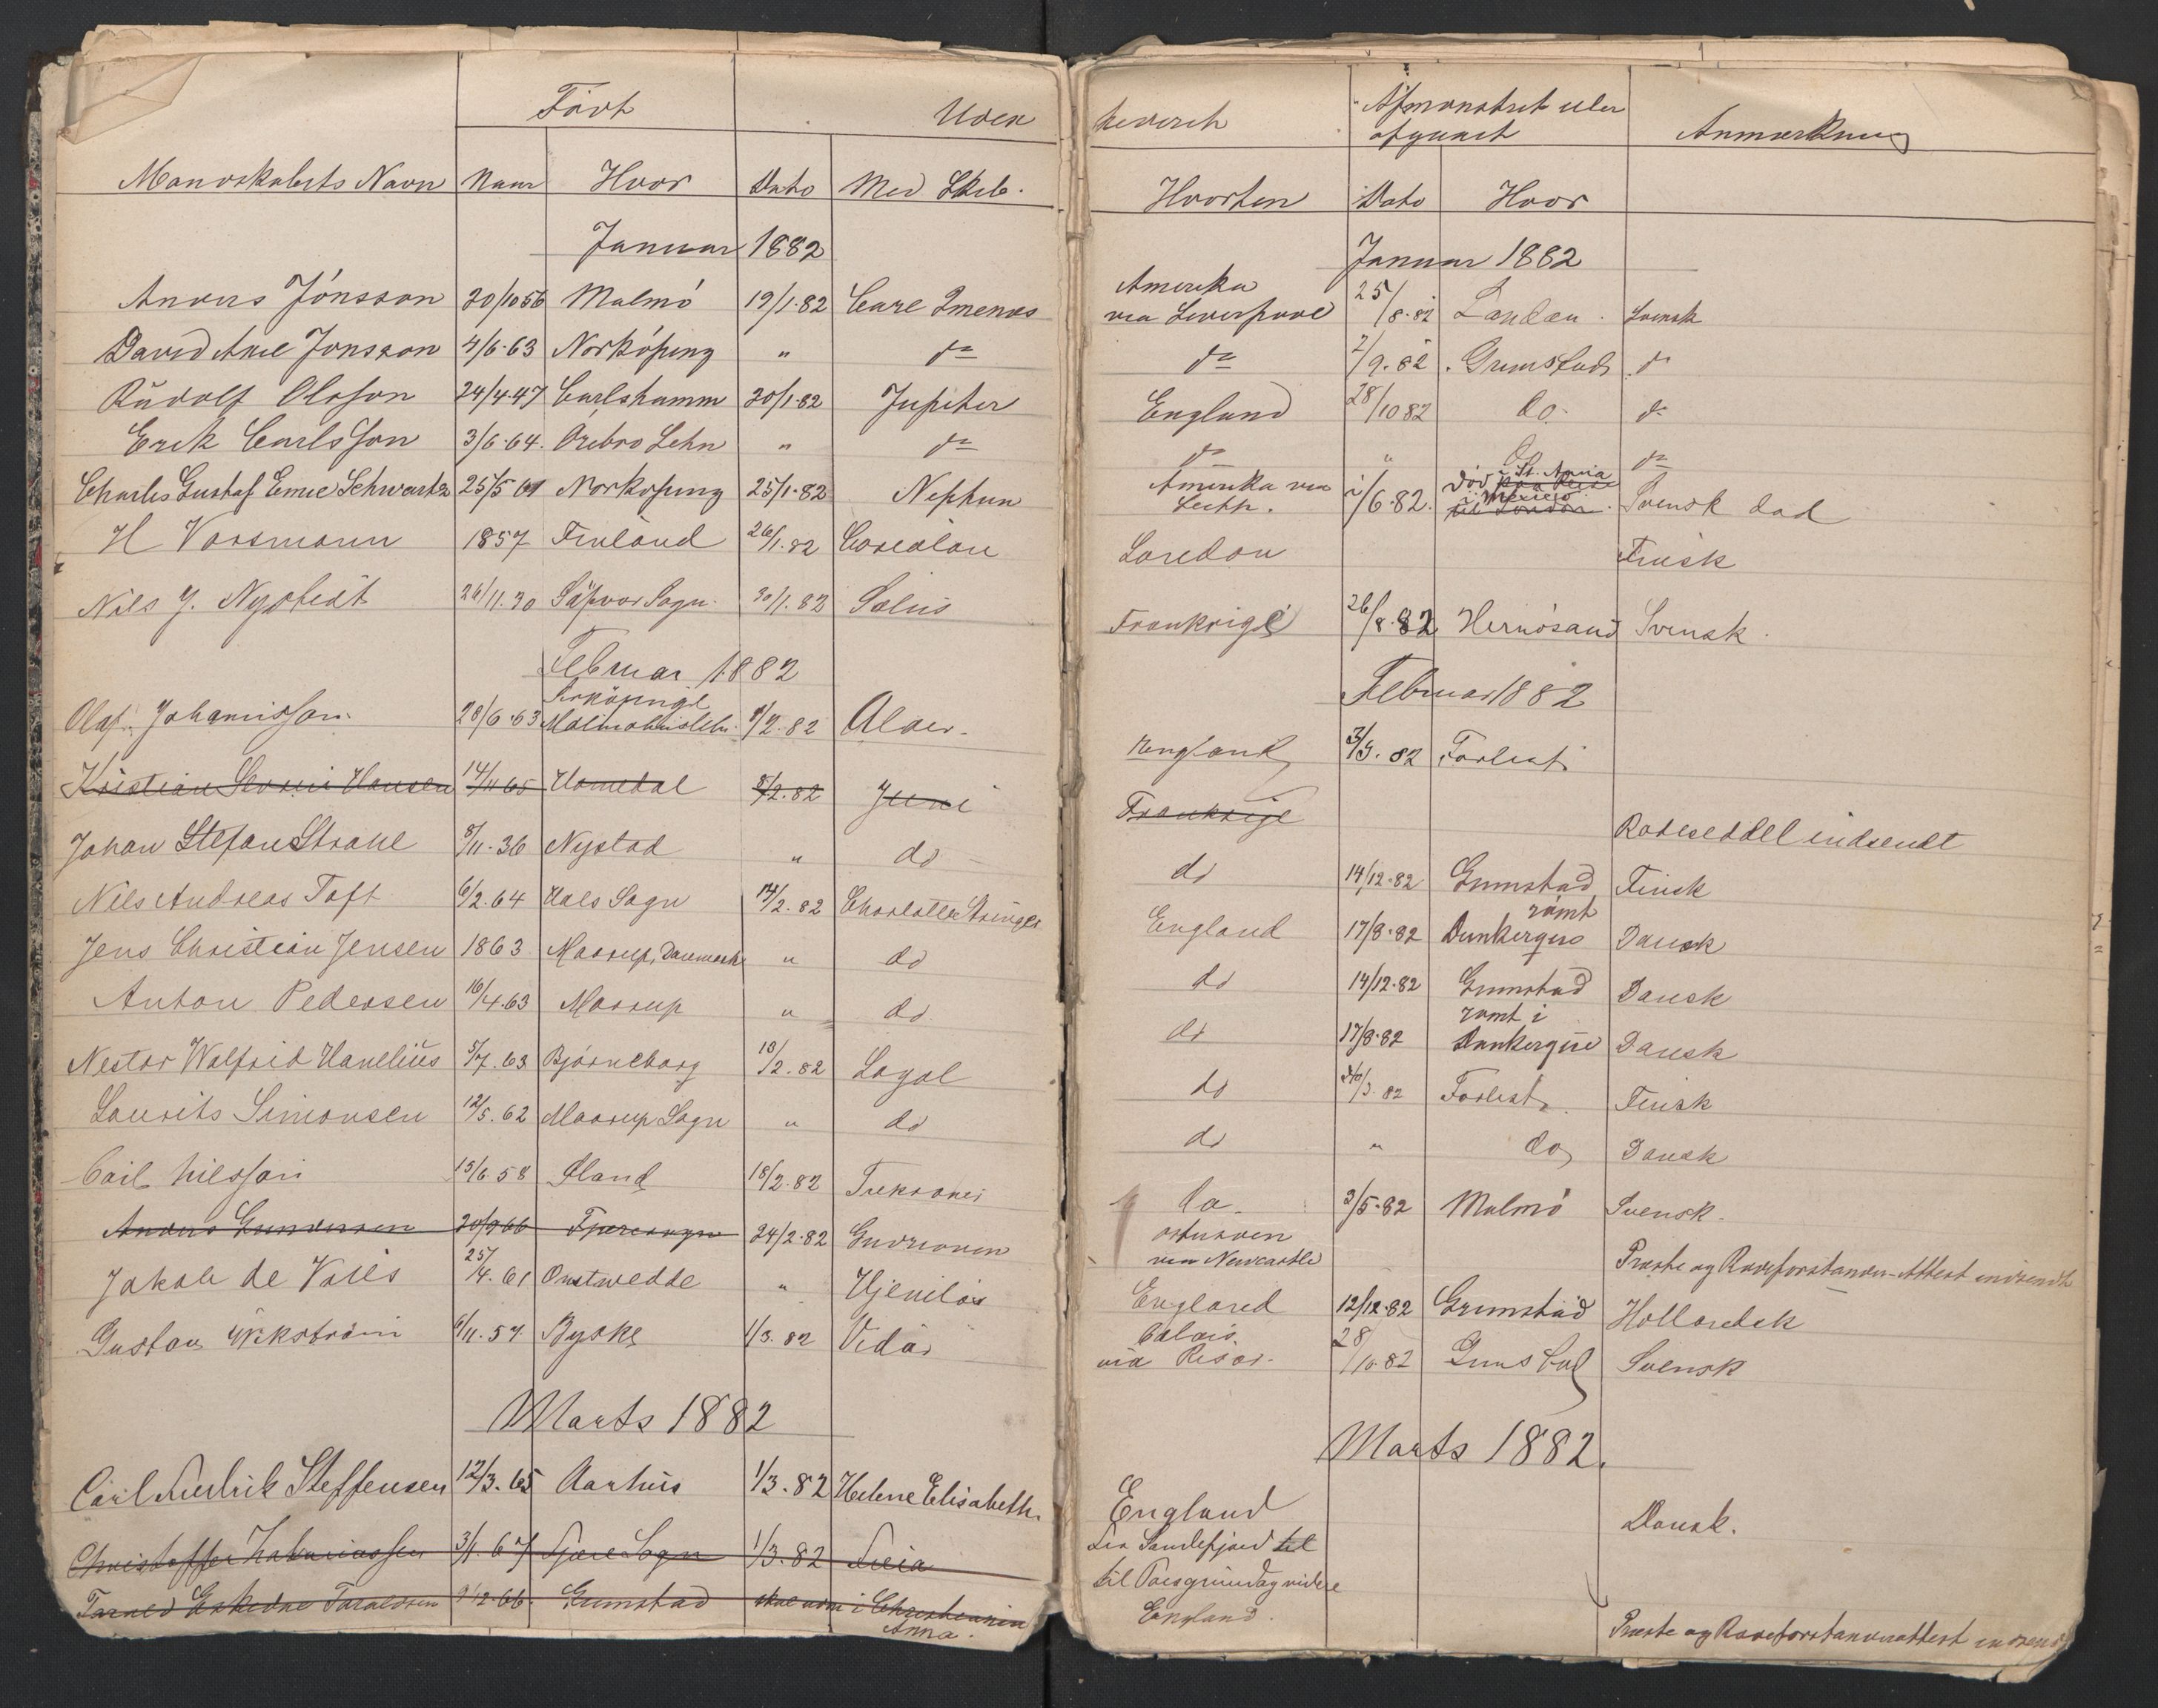 Født
Uden
Mandskabets Navn Naar Hvor Dato Med Skib.
Januar 1882
Anders Jónsson 20/10 56 Malmö 19/1.82 Carl
David Axel Jonsson 4/6.63 Norköping " do
Rudolf Olsson 24/4 47 Carlshamm 20/1.82 Jupiter
Erik Carlsson 3/6.64. Örebro Lehn " do
Charles Gustaf Emil Schwartz 25/5 61 Norköping 25/1.82 Neptun
H Vossmann 1857 Finland 26/1.82
Nils J. Nystedt 26/11.30 Säfvar Sogn 30/1.82 Solid
Februar 1882
Olaf Johannisson 28/6.63 Malmöhuslehn /2.82
Kristian Hansen 14/11 65 Homedal 8/2.82 Juni
Johan Stefan 8/11.36 Nystad " do
Nils Andreas Toft 6/2.64 Hals Sogn 14/2.82 Charlotte
Jens Christian Jensen 1863 Maarup, Danmark " do
Anton Pedersen 16/4.63 Maarup " do
Nestor Walfrid Hanelius 5/7.63 Bjørneborg 18/2.82 Loyal
Laurits Simonsen 12/5.62 Maarup Sogn " do
Carl Nilsson 15/6 58 Øland 18/2.82
Anders Gundersen 20/9 66 Fjæresogn 24/2.82
Jakob de Vries 25/4.61 Onstwedde "
Gustav Wikström 6/11.57 Byske 1/3.82 Vidar
Marts 1882
Carl Fredrik Steffensen 12/3.65 Aarhus 1/3.82 Helene Elisabeth
Christoffer Zakariassen 3/1.67 Fjære Sogn 1/3.82
Grimstad i Christiania
Anna.
rigsk
Afmønstret eller
afgaaet Anmærkning
Hvorhen Dato Hvor
Januar 1882
Amerika
via Liverpool 25/8.82 London. Svensk
do 2/9.82 Grimstad do
England 28/10 82 do. do
do " do do
Amerika via
Leith. 1/6.82. Død i St. Anna
i Mexico
paa Reise
til London. Svensk død
London Finsk
Frankrige 26/8.82 Hernösand Svensk.
Februar 1882
England 3/5.82 Forlist
Frankrige
Rodeseddel indsendt
do 14/12.82 Grimstad Finsk
England 17/8.82 rømt
Dunkerque Dansk
do 14/12.82 Grimstad Dansk
do 17/8.82 rømt i
Dunkerque Dansk
do /3.82 Forlist Finsk
do " do Dansk
do. 3/5.82 Malmö Svensk.
Østersøen
via Newcastle
Præste og Rodeforstander-Attest indsendt
England 12/12.82 Grimstad Hollandsk
Calais
via Risør. 28/10.82 Grimstad Svensk
Marts 1882.
England Dansk.
Sandefjord til
til Porsgrund og videre
England.
Præste og Rodeforstanderattest indsendt